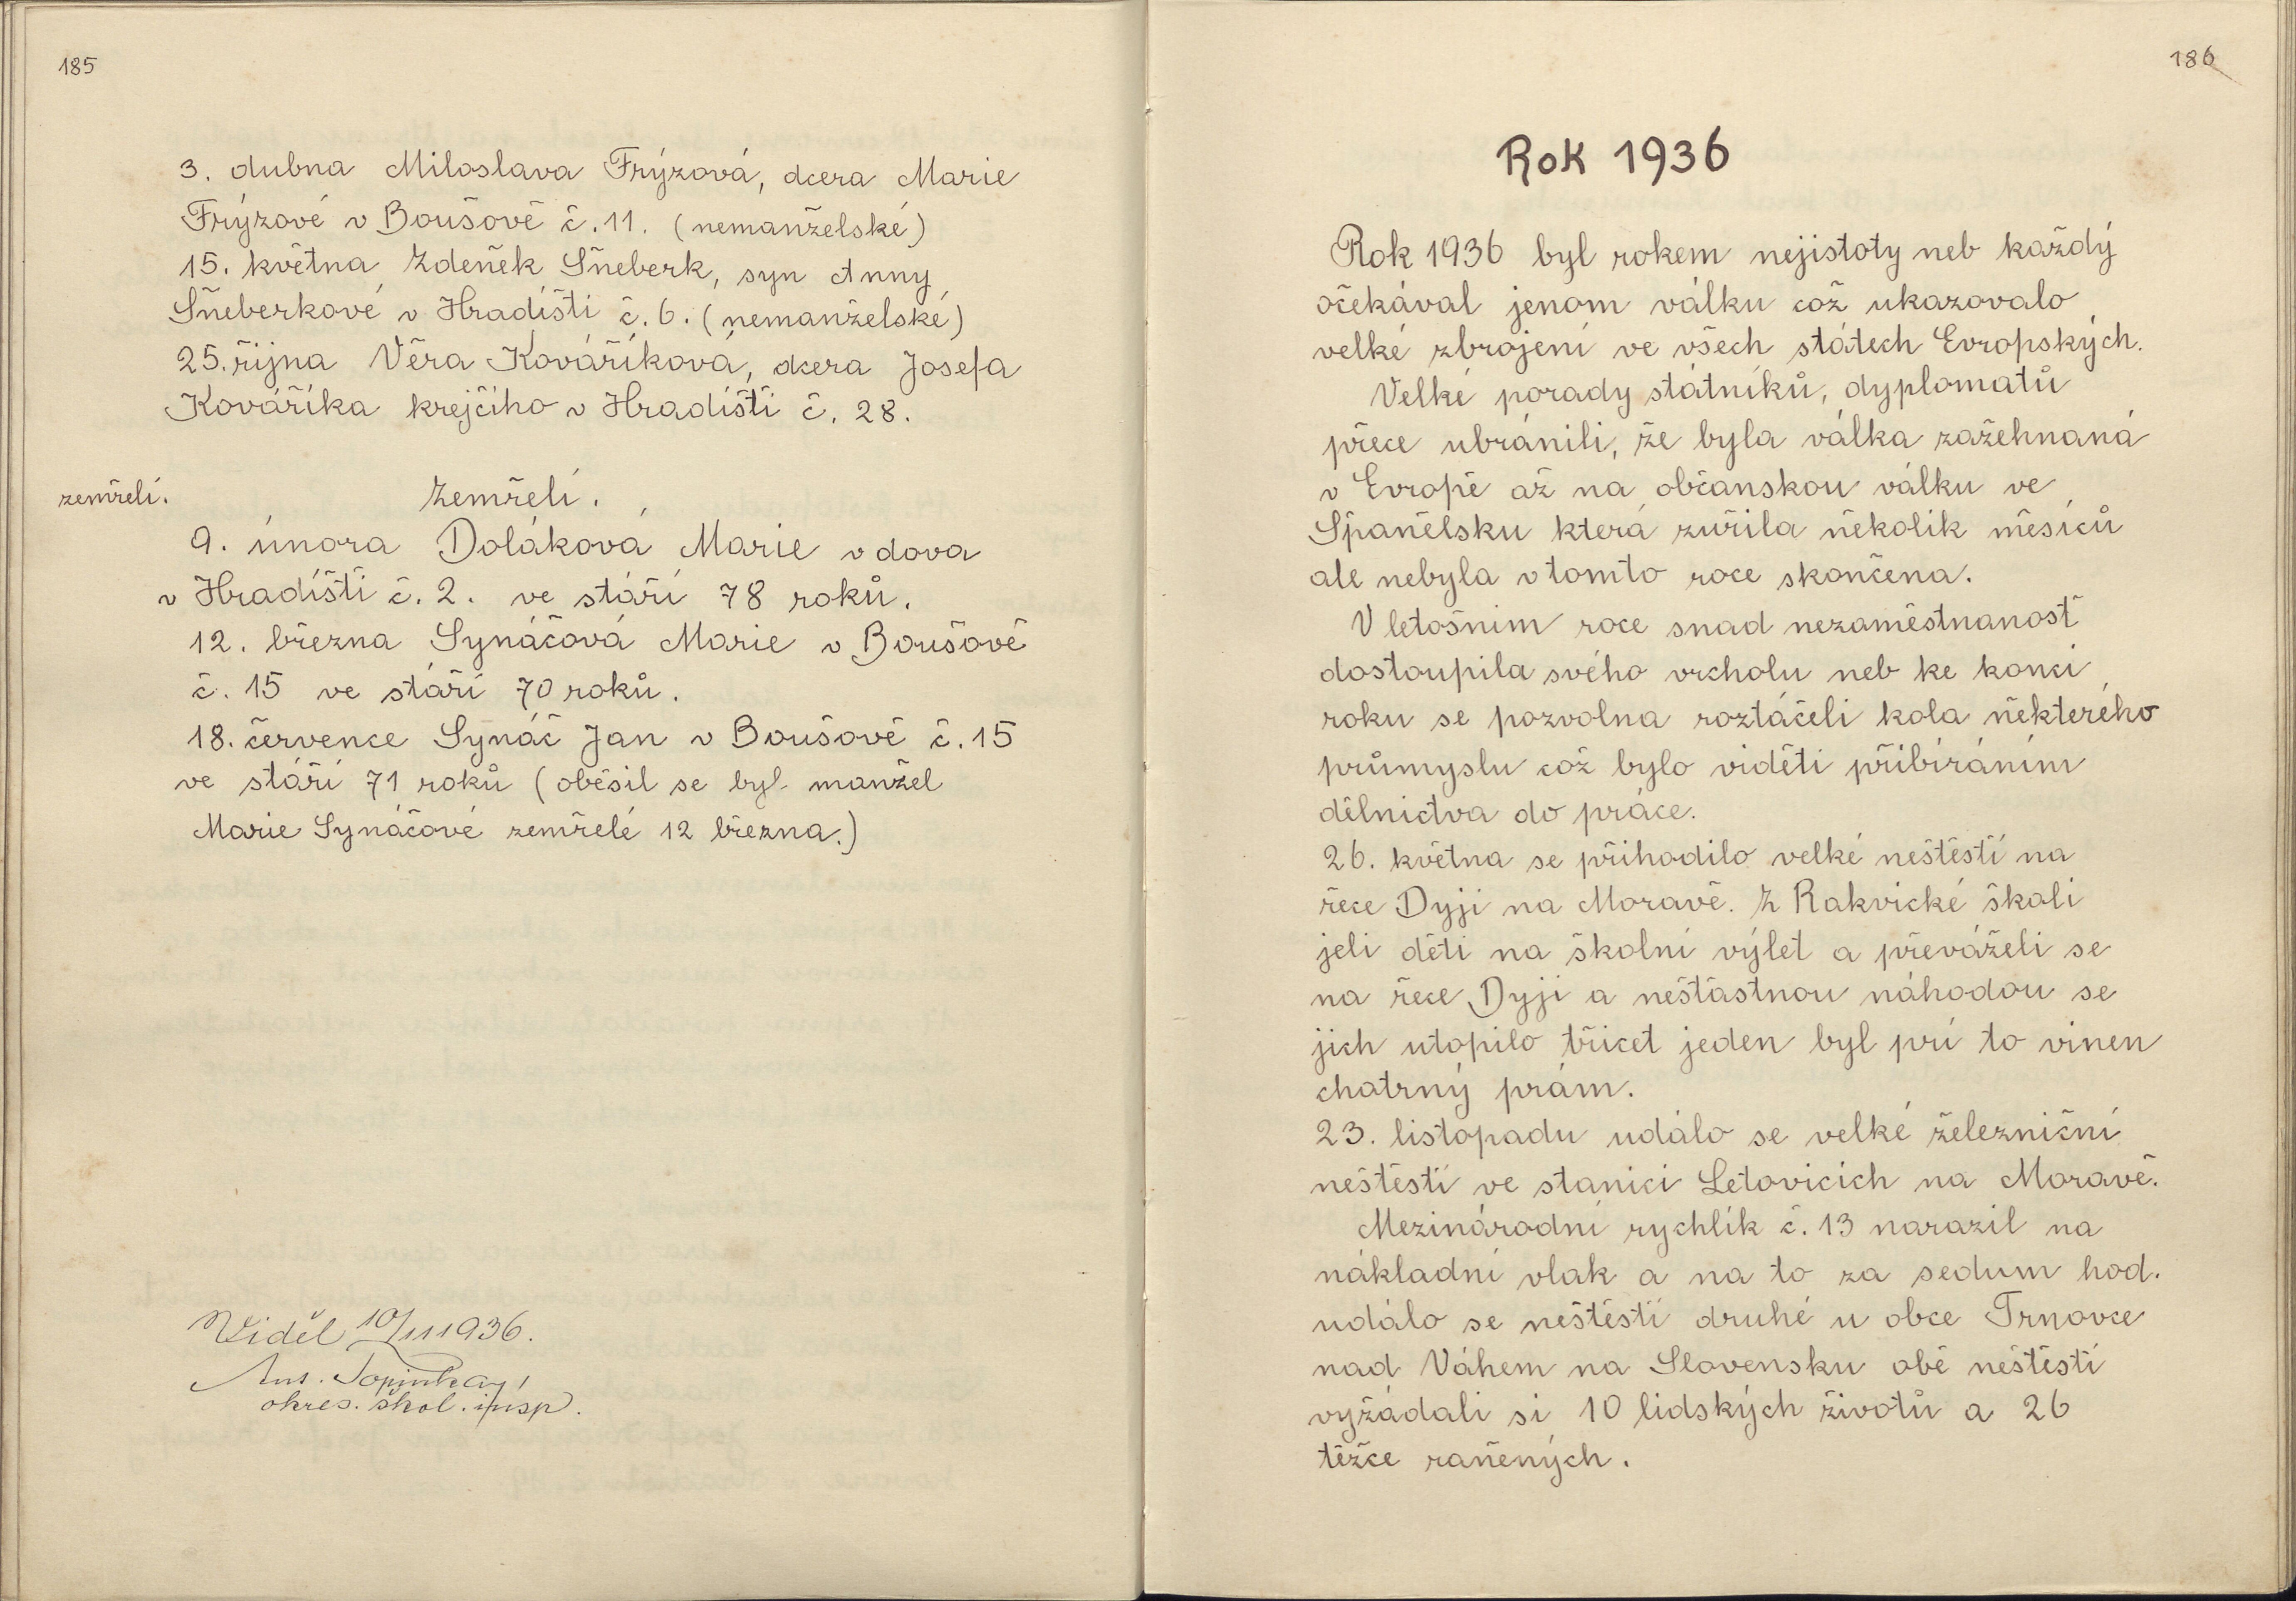 185
3. dubna Miloslava Frýzová, dcera Marie
Frýzové v Boušově č. 11. (nemanželské)
15. května Zdeněk Šneberk, syn Anny
Šneberkové v Hradišti č. 6. (nemanželské)
25. října Věra Kováříková, dcera Josefa
Kováříka krejčího v Hradišti č. 28.
zemřelí.
Zemřelí.
9. února Doláková Marie vdova
v Hradišti č. 2. ve stáří 78 roků.
12. března Synáčová Marie v Boušově
č. 15 ve stáří 70 roků.
18. července Synáč Jan v Boušově č. 15
ve stáří 71 roků (oběsil se byl manžel
Marie Synáčové zemřelé 12 března.)
Viděl 10/III 1936.
Ant.
okres. škol. insp.
186
Rok 1936
Rok 1936 byl rokem nejistoty neb každý
očekával jenom válku což ukazovalo
velké zbrojení ve všech státech Evropských.
Velké porady státníků, dyplomatů
přece ubránili, že byla válka zažehnaná
v Evropě až na občanskou válku ve
Španělsku která zuřila několik měsíců
ale nebyla v tomto roce skončena.
V letošním roce snad nezaměstnanosť
dostoupila svého vrcholu neb ke konci
roku se pozvolna roztáčeli kola některého
průmyslu což bylo viděti přibíráním
dělnictva do práce.
26. května se přihodilo velké neštěstí na
řece Dyji na Moravě. Z Rakvické školi
jeli děti na školní výlet a převáželi se
na řece Dyji a nešťastnou náhodou se
jich utopilo třicet jeden byl pří to vinen
chatrný prám.
23. listopadu událo se velké železniční
neštěstí ve stanici Letovicích na Moravě.
Mezinárodní rychlík č. 13 narazil na
nákladní vlak a na to za sedum hod.
událo se neštěstí druhé u obce Trnovce
nad Váhem na Slovensku obě neštěstí
vyžádali si 10 lidských životů a 26
těžce raněných.